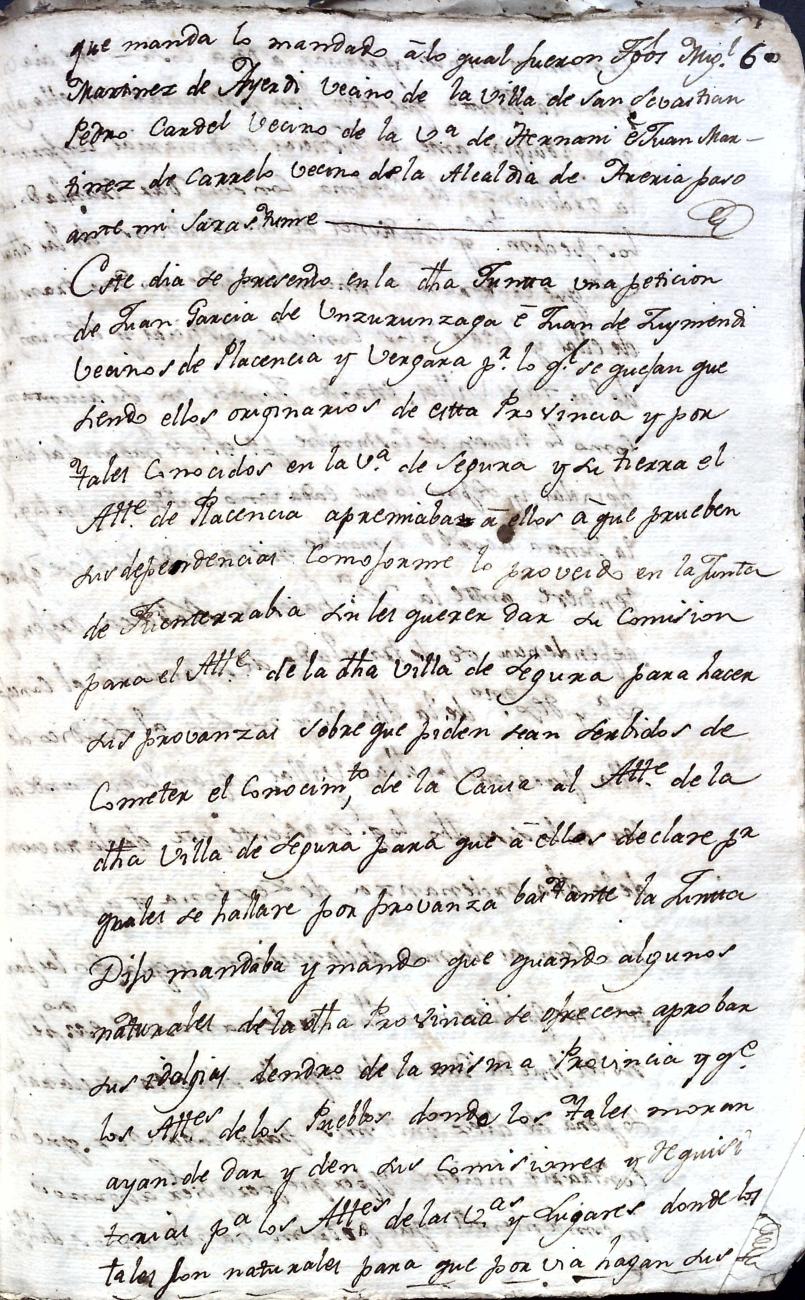 que manda lo mandado â lo qual fueron Tgos Migl 6
Martinez de Ayerdi vecino de la villa de San Sevastian
Pedro Cardel Vecino de la Va de Hernani ê Juan Mar-
tinez de Carrelo vecino de la Alcaldia de Areria paso
ante mi
Este dia se presento en la dha Juntta una peticion
de Juan Garcia de Unzurunzaga ê Juan de Luymendi
vecinos de Placencia y Vergara pr lo ql se quejan que
siendo ellos originarios de estta Provincia y por
tales Conocidos en la Va de Segura y su tierra el
Alle de Placencia apremiaban â ellos â que prueben
sus dependencias Comoforme lo proveido en la Junta
de Fuenterrabia sin les querer dar su Comision
para el Alle de la dha villa de Segura para hacer
sus provanzas sobre que piden sean serbidos de
Cometer el Conocimto de la Causa al Alle de la
dha Villa de Segura para que â ellos declare pr
quales se hallare por provanza bastante la Juntta
Dijo mandaba y mando que quando algunos
naturales de la dha Provincia se ofrecen aprobar
sus idalgias dendro de la misma Provincia y qe
los Alles de los Pueblos donde los tales moran
ayan de dar y den sus Comisiones y Requisi
torias pa los Alles de las Vas y Lugares donde los
tales son naturales para que por via hagan sus